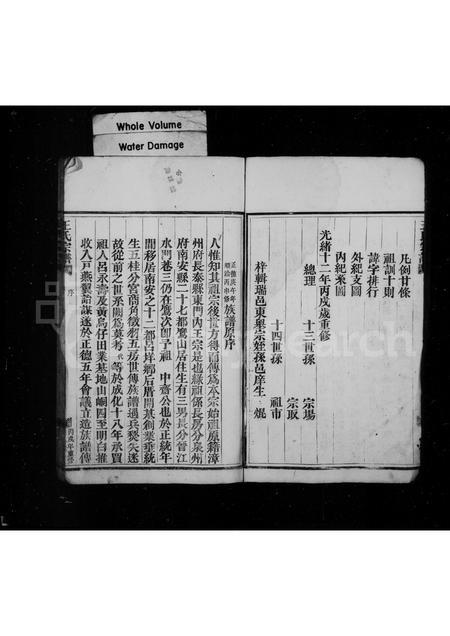 Whole Volume
Water Damage
凡例廿條
祖訓十則
諱字排行
外紀支圖
內紀系圖
光緒十二年丙戌歲重修
總理 十三世孫 宗場
宗取
十四世孫 祖市
梓輯瑞邑東墾宗姪孫邑庠生 焜
正德庚午年
順治丙申修 族譜原序
人惟知其祖宗後世方得而傳為本宗始祖原籍漳
州府長泰縣東門內王宗是也緣祖係長房分泉州
府南安縣二十七都鷹山居住生有三男長分晉江
水門巷三仍在鷹次即子祖 中齋公也於正統年
間移居南安之十二都呂垟鄉后厝門基創業垂統
生五桂分宮商角徵羽五房世傳族譜遇兵燹失迷
故從前之世系闕焉莫考 等於成化十八年承買
祖人呂永壽及黃烏仔田業基地山嗣四至明白推
收入戶燕翼詒謀遂於正德五年會議立造族譜傳
王氏宗譜 序 丙戌年重修